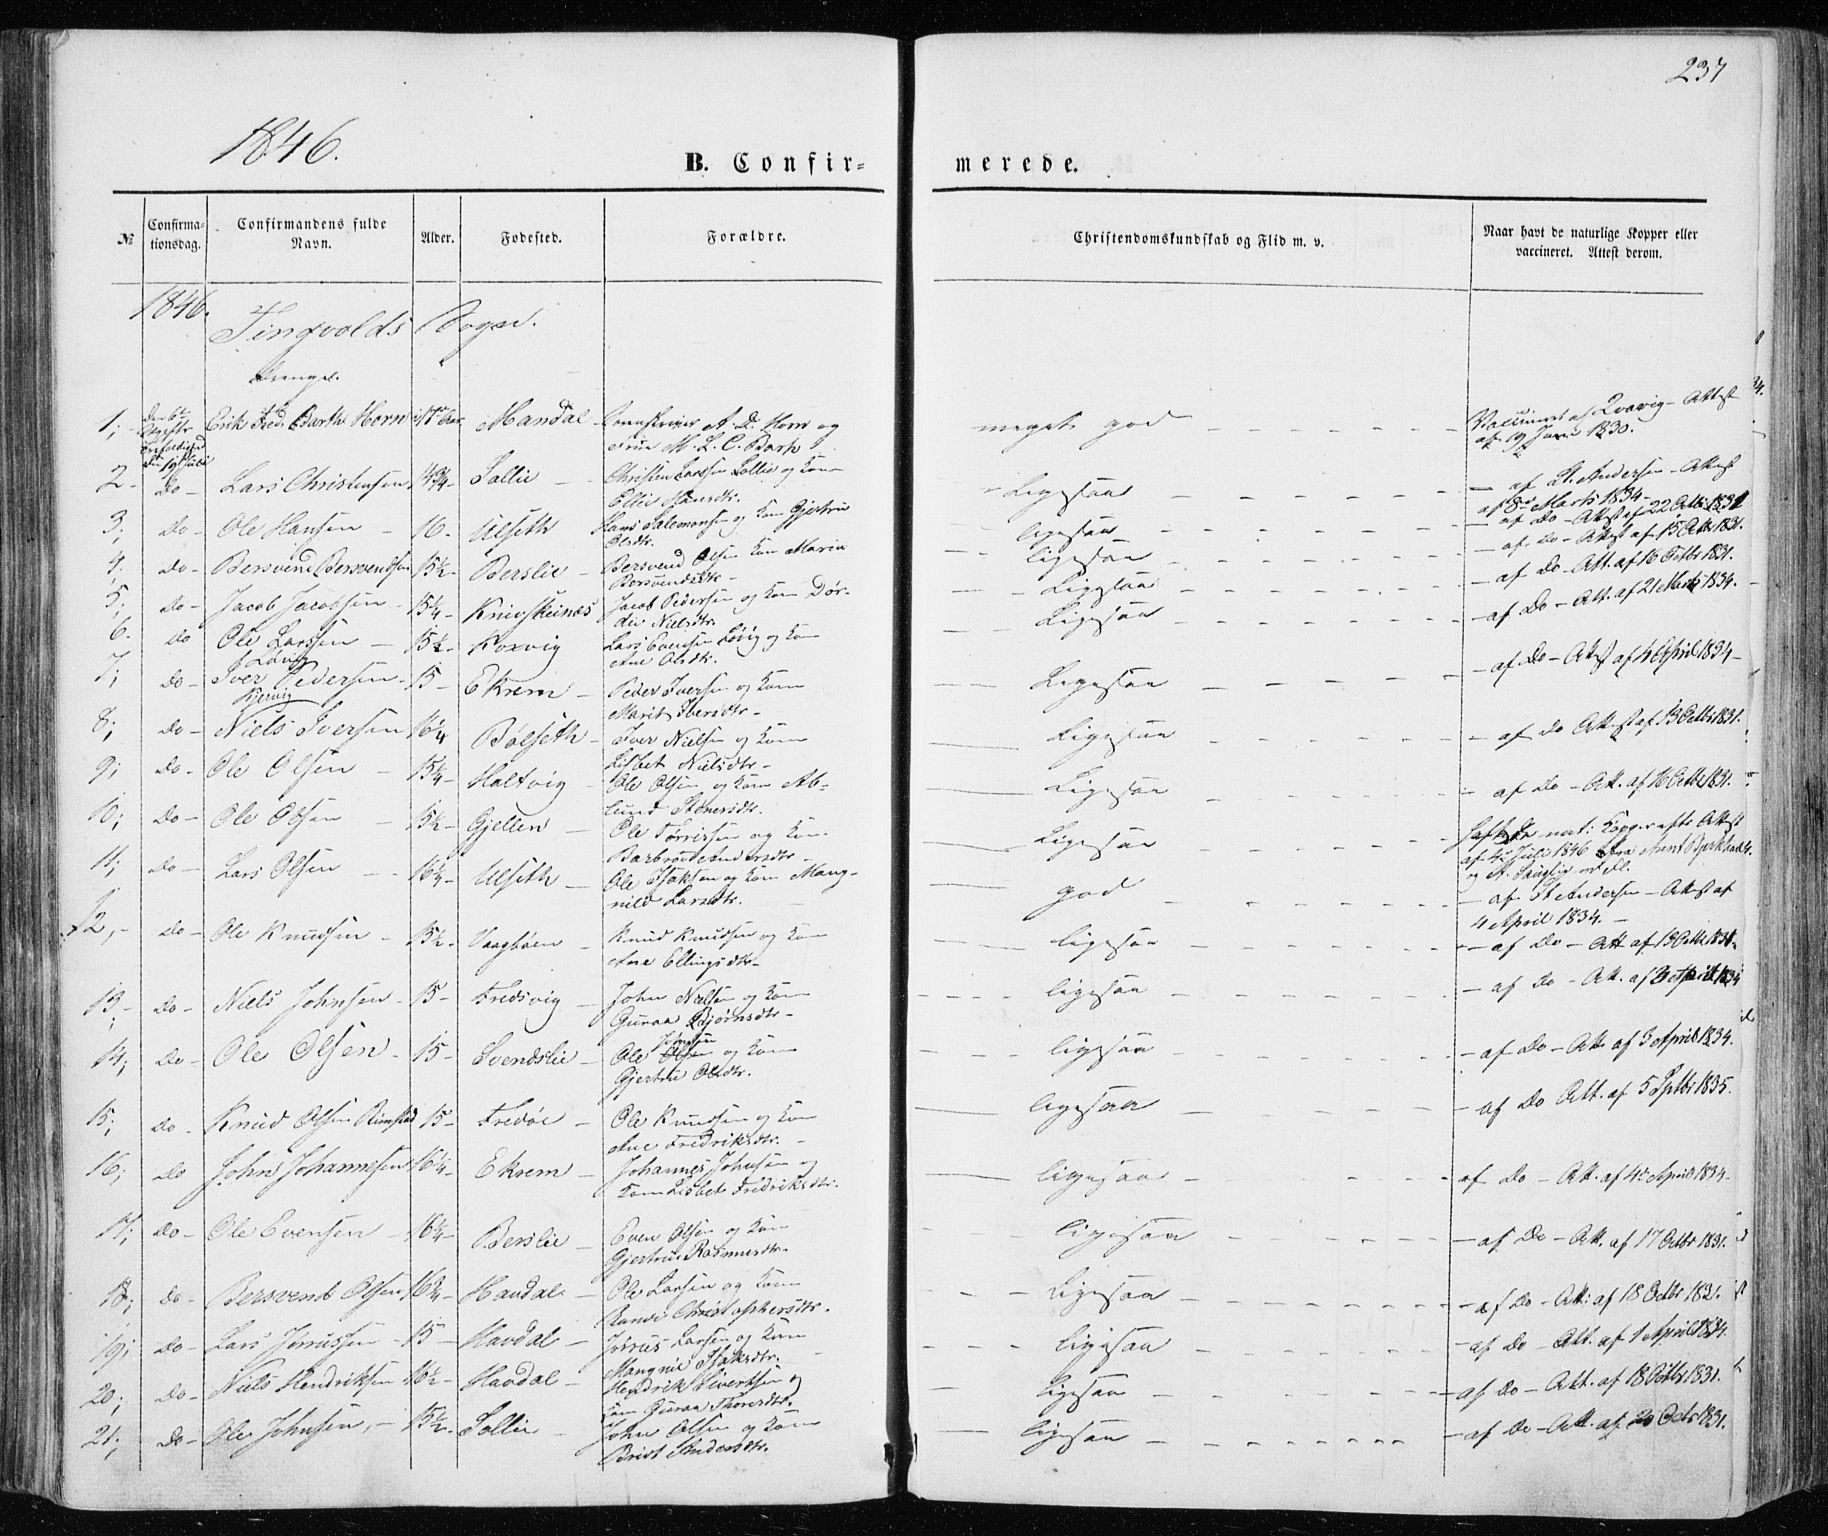 237
1846.
B. Confir- merede.
№ Confirma-tionsdag. Confirmandens fulde Navn. Alder. Fødested. Forældre. Christendomskundskab og Flid m. v. Naar havt de naturlige Kopper eller vaccineret. Attest derom.
1846.
Tingvolds Sogn.
Drenge.
1; Erik Fred. Barth Horn 17 Mandal A. D. Horn og Frue M. L. C. Barth meget god Vaccineret af Attest af 19 Juni 1830.
2- Do Lars Christensen 14¾- Sollie - Christen Larssen Sollie og Kone Ellie Hansdtr. Ligesaa - af St. Andersen - Attest af 8de Marts 1834-
3; do- Ole Hansen - 16- Ulseth Hans Salomonsen og Kone Gjertru Olsdtr. ligesaa - af Do - Attest af 22 Octbr 1831
4; do- Bersvend Bersvendsen 15½- Berslie - Bersvend Olsen Kone Maria Bersvendsdtr- ligesaa - af do - Attest af 15 Octbr 1831.
5; do- Jacob Jacobsen - 15¼- Knivskeinæs Jacob Pedersen og Kone Dørdie Nielsdtr. Ligesaa - af Do - Att. af 16 Octbr 1831.
6. do Ole Larssen Løvig - 15½- Koxvig Lars Evensen Løvig og Kone Ane Olsdtr. Ligesaa - af Do - Att. af 21 Marts 1834.
7; do- Iver Pedersen Kjervig - 15- Ekrem - Peder Iversen og Kone Marit Iversdtr- Ligesaa - af Do - Attest af 4 April 1834-
8; do- Niels Iversen 16¼ Bølseth - Iver Nielsen og Kone Lisbet Nielsdtr- Ligesaa - af do Attest af 13 Octbr 1831.
9; do- Ole Olsen - 15¼- Holtvig - Ole Olsen og Kone Ablund Stenersdtr. Ligesaa - af Do - Att. af 16 Octbr 1831.
10; do- Ole Olsen - 15½- Gjellen - Ole Tørrissen og Kone Barbroe Andersdtr - Ligesaa - Haft de nat: Kopper efter Attest af 4de Juli 1846
11; do- Lars Olsen - 16¼- Ulseth - Ole Isaksen og Kone Mangnild Larsdtr. god - af St Andersen - Attest af 4 April 1834.-
12,- do- Ole Knudsen - 15½- Vaagbøen - Knud Knudsen og Kone Ane Ellingsdtr- ligesaa - af Do - Att af 13 Octbr 1831-
13; do- Niels Johnsen - 15- Fredsvig - John Nielsen og Kone Guraa Bjørnsdtr- ligesaa - af Do - Att. af April 1834
14; do- Ole Olsen - 15- Svendslie - Ole Olsen og Kone Gjertru Olsdtr. ligesaa - af Do - Att af 3 April 1834.
15; do- Knud Olsen Rimstad 15- Fredøe - Ole Knudsen og Kone Ane Fredriksdtr. - ligesaa - af Do Att. af 5 Septbr 1835.
16; do John Johannesen 16¼- Ekrem - Johannes Johnsen og Kone Lisbet Fredriksdtr. ligesaa - af Do - Att. af 4de April 1834-
17; do- Ole Evensen - 16¼- Berslie - Even Olsen og Kone Gjertrue Rasmusdtr- ligesaa - af Do - Att. af 17 Octbr 1831.
18; do- Bersvend Olsen 16¾- Havdal - Ole Larsen og Kone Randi Christophersdtr. Ligesaa - af Do - Att: af 18 Octbr 1831.
19; do- Lars Jørrussen - 15- Havdal - Jørrus Larsen og Kone Mangnil Isaksdtr. ligesaa - af do - Att. af 1 April 1834.
20; do- Niels Hendriksen 16½- Havdal - Hendrik Sivertsen og Kone Guraa Thoresdtr. ligesaa - af Do - Att. af 18 Octbr 1831.
21; do- Ole Johnsen - 15½- Sollie - John Olsen og Kone Brit Andersdtr. ligesaa - af Do - Att. af 20 Octbr 1831.